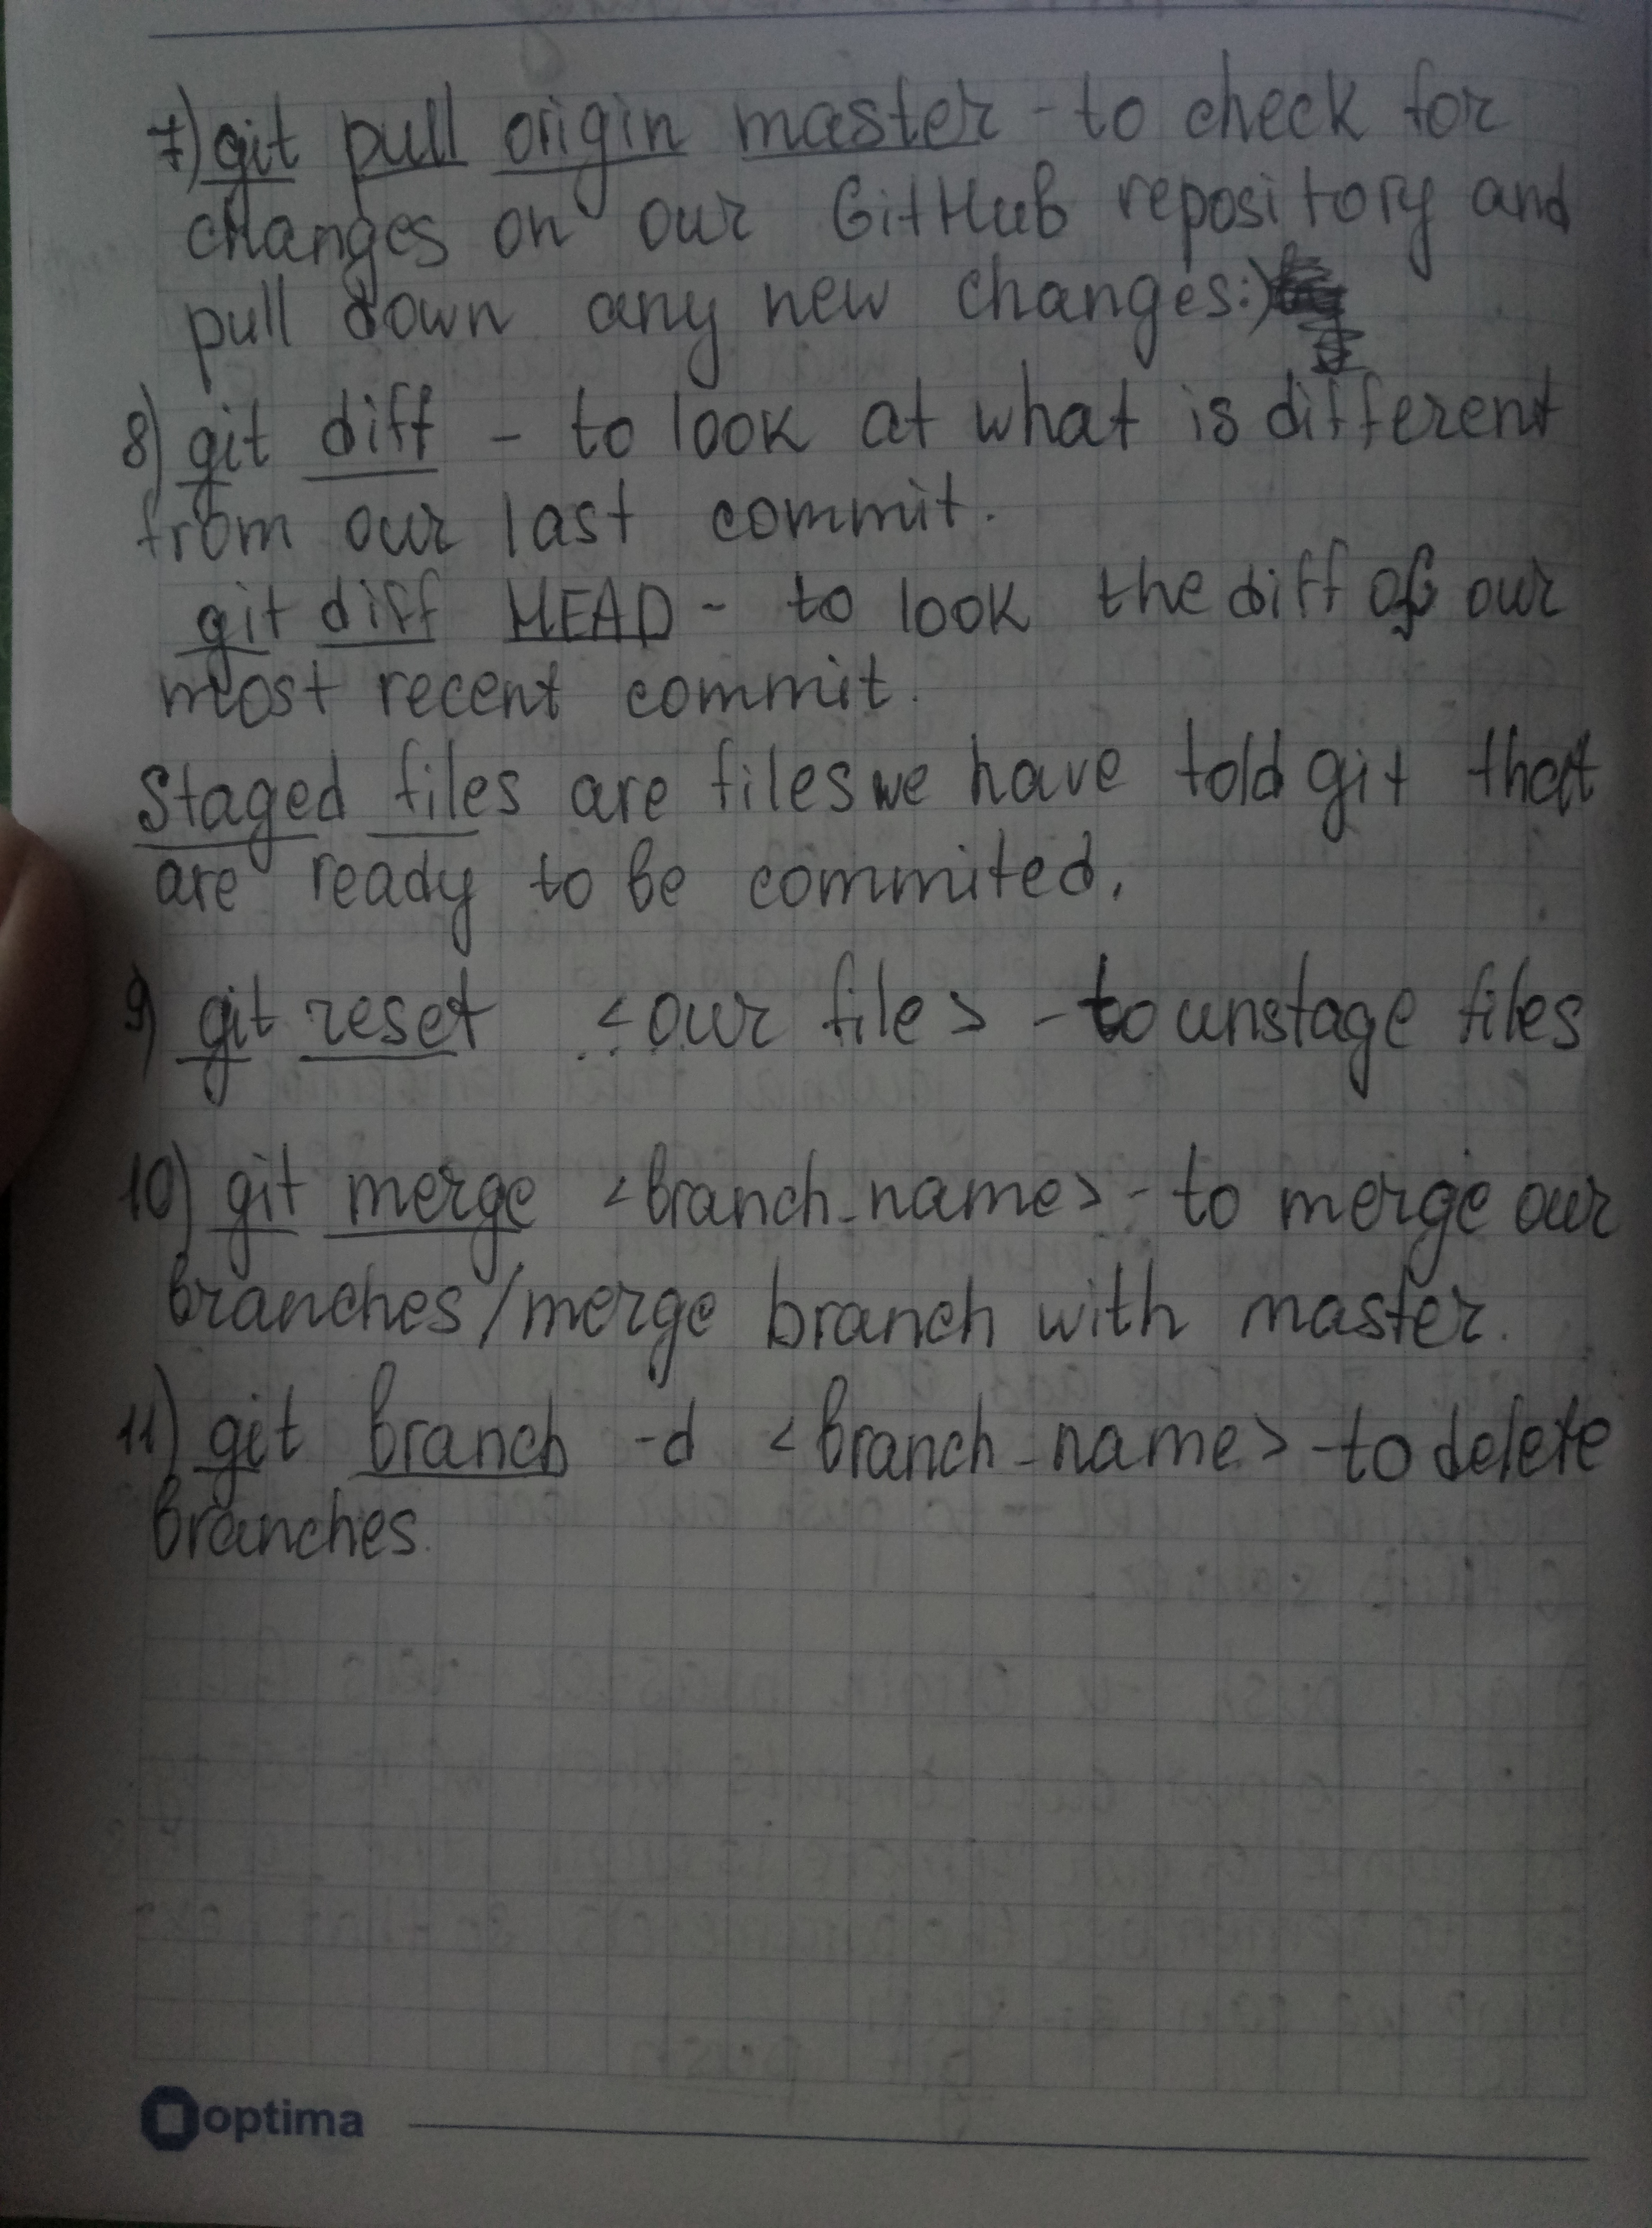 7) git pull origin master - to check for
changes on our GitHub repository and
pull down any new changes:)
8) git diff - to look at what is different
from our last commit.
git diff HEAD - to look the diff of our
most recent commit.
Staged files are files we have told git that
are ready to be commited.
9) git reset <our file> - to unstage files
10) git merge <branch_name> - to merge our
branches/merge branch with master.
11) git branch -d <branch_name> - to delete
branches.
optima